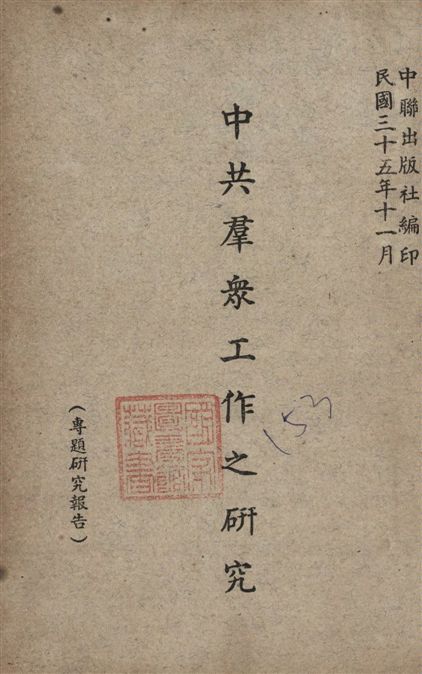 中聯出版社編印
民國三十五年十一月
中共羣衆工作之研究
(專題研究報告)